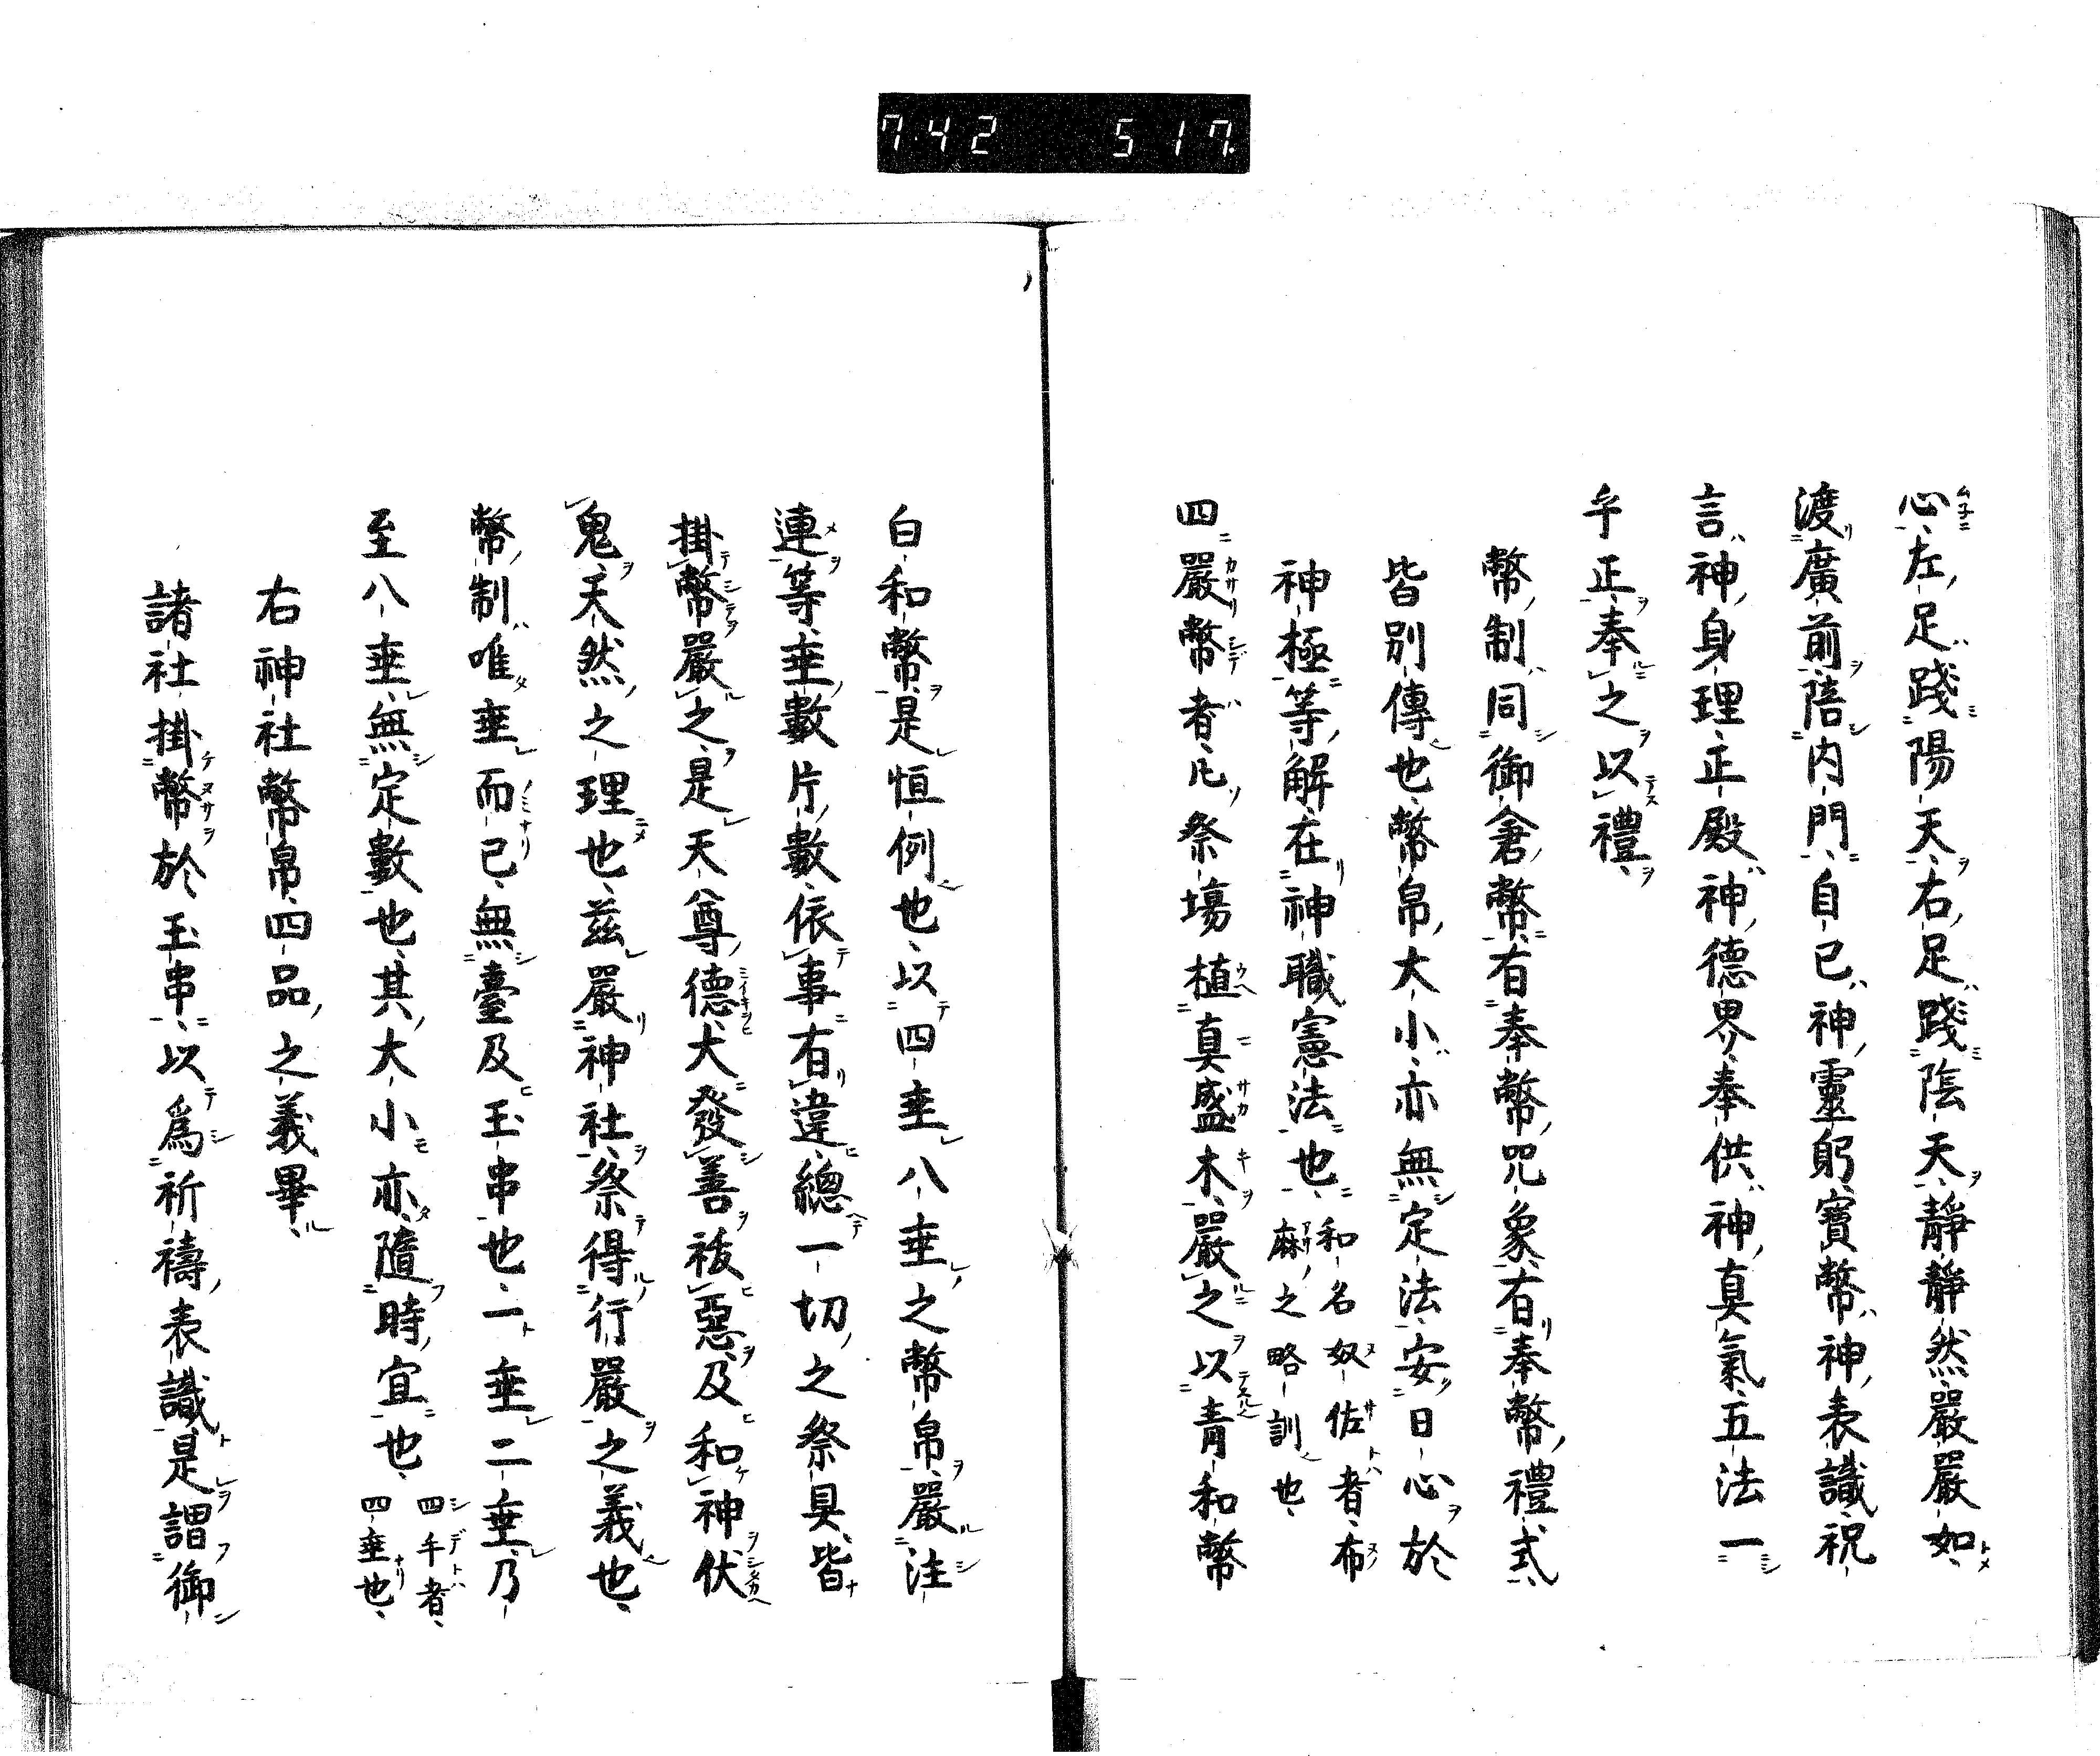 742 517
心左足踐陽天右足踐陰天靜靜然嚴嚴如
渡廣前陪內門自己神靈躬寶幣神表識祝
言神身理正殿神德界奉供神真氣五法一
乎正奉之以禮
幣制同御倉幣有奉幣咒象有奉幣禮式
皆別傳也幣帛大小亦無定法安日心於
神極等解在神職憲法也
和名奴佐者布
麻之略訓也
四嚴幣者凡祭場植真盛木嚴之以青和幣
白和幣是恒例也以四垂八垂之幣帛嚴注
連等垂數片數依事有違總一切之祭具皆
掛幣嚴之是天尊德犬發善祓惡及和神伏
鬼天然之理也茲嚴神社祭得行嚴之義也
幣制唯垂而已無臺及玉串也一垂二垂乃
至八垂無定數也其大小亦隨時宜也
四手者
四垂也
右神社幣帛四品之義畢
諸社掛幣於玉串以爲祈禱表識是謂御